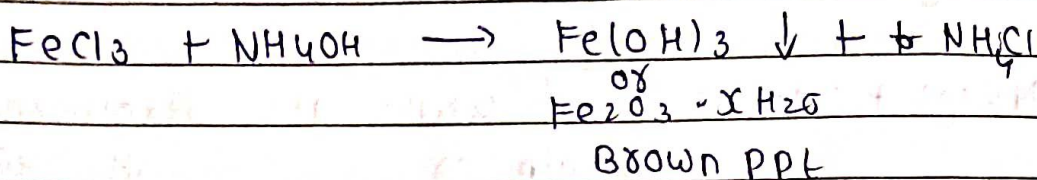 FeCl3 + NH4OH → Fe(OH)3 ↓ + NH4Cl
or
Fe2O3 · xH2O
Brown ppt